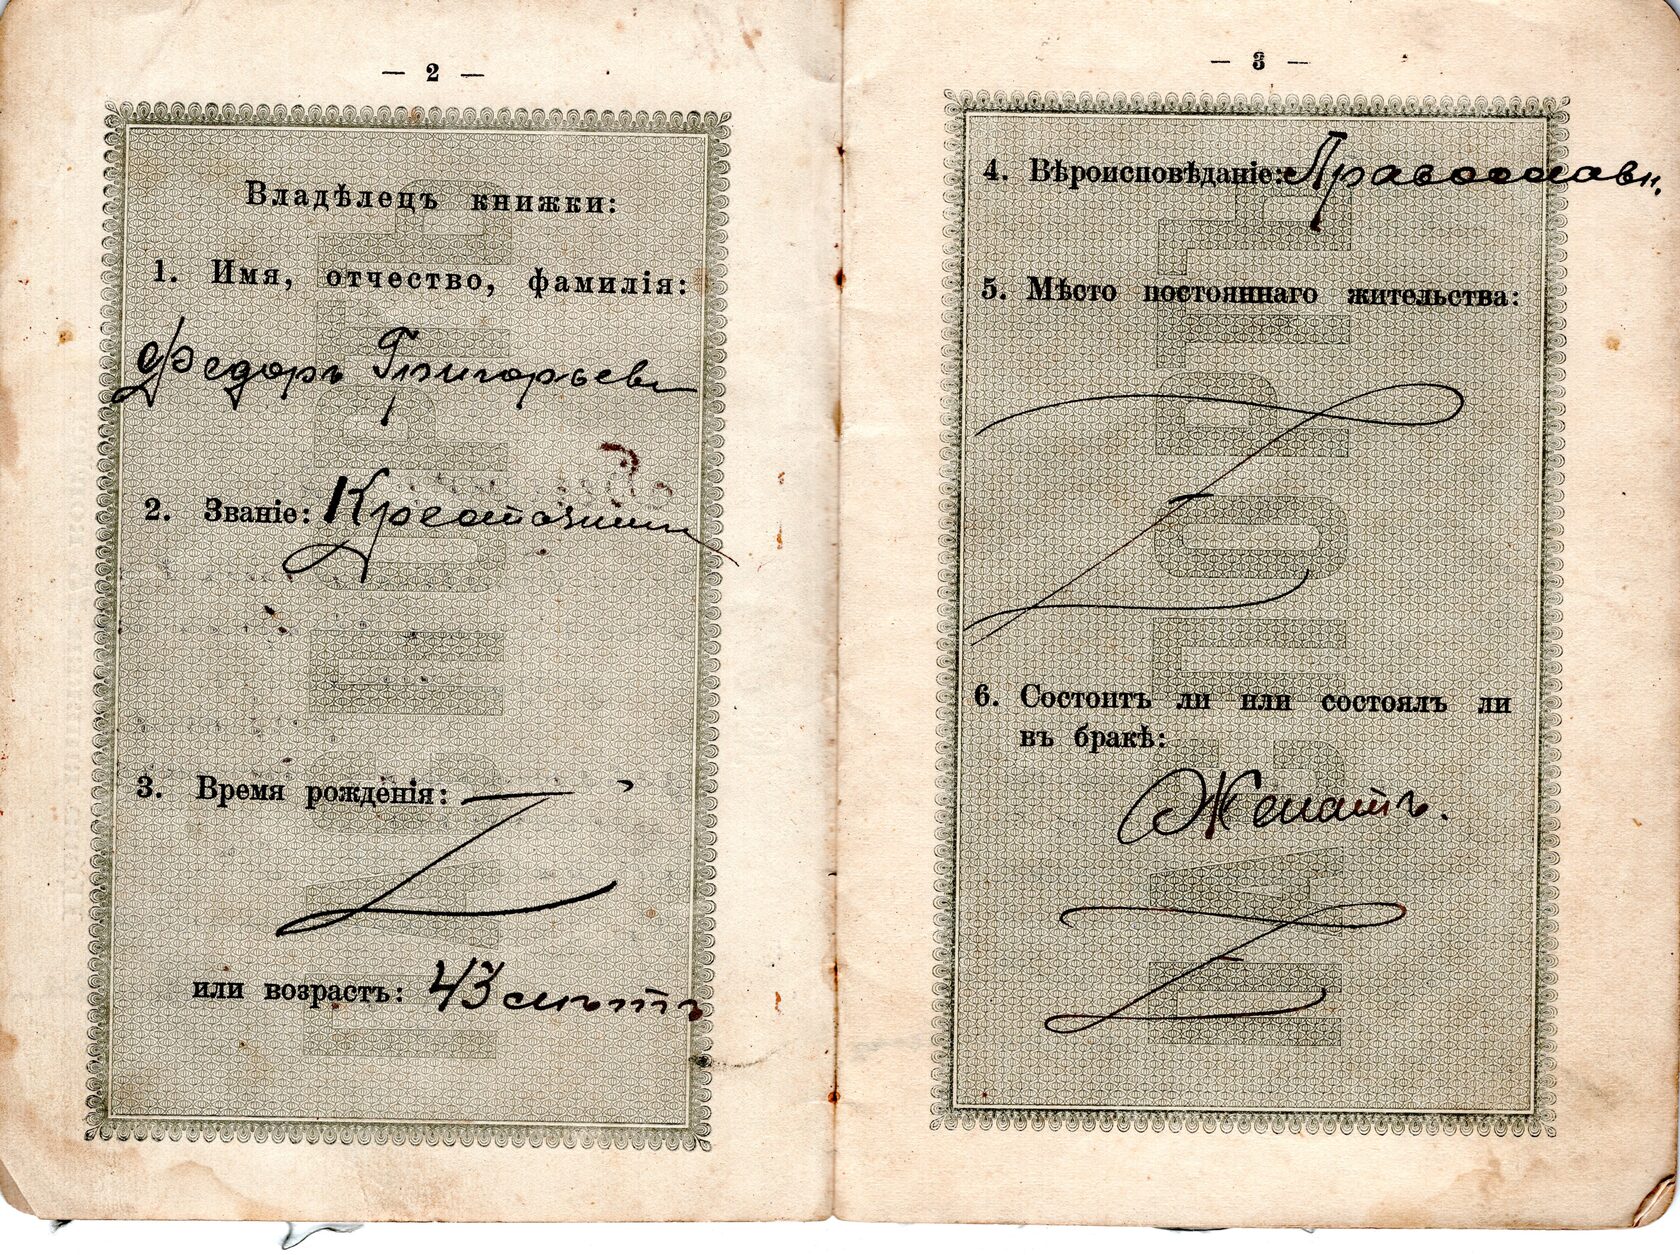 — 2 —
Владѣлецъ книжки:
1. Имя, отчество, фамилія:
Федоръ Григорьевъ
2. Званіе: Крестьянин
3. Время рожденія:
или возрастъ: 43 лѣтъ
— 3 —
4. Вѣроисповѣданіе: Православн.
5. Мѣсто постояннаго жительства:
6. Состоитъ ли или состоялъ ли
въ бракѣ:
Женатъ.